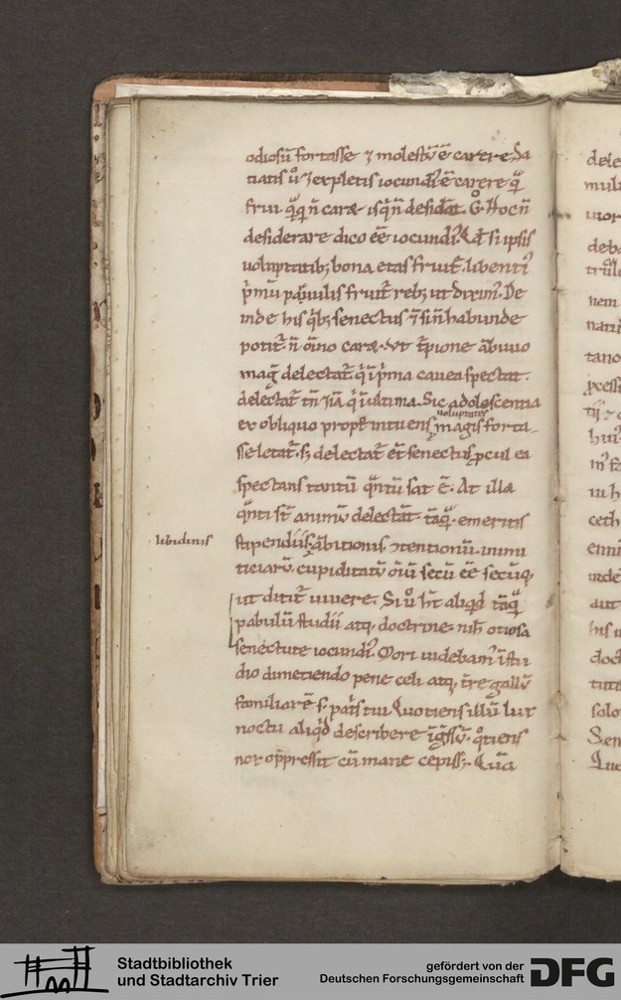 odiosū fortasse ⁊ molestū ē carere. Sa
tiatis ů ⁊ expletis iocundiꝰ ē carere qͣ̄
frui. qͣ̄qͣ̄ n̄ caræ is q̄ n̄ desidat̄. G̊. Hoc n̄
desiderare dico eē iocundiꝰ. Qd̄ si ipsis
uoluptatibꝫ bona etas fruit̄. libentiꝰ
p̄mū paruulis fruit̄ rebꝫ ut diximꝰ. De
inde his qͥbꝫ senectus ⁊ si n̄ habunde
potit̄. n̄ oīno caræ. Vt t̄pione ābiuio
maḡ delectat̄. qͥ ī p̄ma cauea spectat.
delectat̄ tn̄ &iā qͥ ī ultima. Sic adoloscentia
uoluptates
ex obliquo prope intuens magis forta
sse letat̄. sꝫ delectat̄ et̄ senectus ꝓcul ea
spectans tantū qn̄tū sat ē. At illa
qn̄ti st̄ animū delectat̄. tāqͣ̄ emeritis
libidinis
stipendiis. ābitionis. ↄtentionū. inimi
ticiarū. cupiditatū oīuꝫ secū eē secūqꝫ
ut dicit̄ uiuere. Si ů ht̄ aliqd̄ tāqͣ̄
pabulū studii atqꝫ doctrine. nih̄ otiosa
senectute iocundiꝰ. Mori uidebamꝰ ī stu
dio dimetiendo pene celi atqꝫ t̄re gallū
familiarē s. pat̄s tui. Quotiens illū lux
noctu aliqͥd describere īḡssū. qͦtiens
nox opp̄ressit cū mane cepissꝫ. Quā
dele
mul
uior
deba
nem
natu
tano
iu h
ceth
aut
his
doct
solo
Sen
Stadtbibliothek
und Stadtarchiv Trier
gefördert von der
Deutschen Forschungsgemeinschaft
DFG